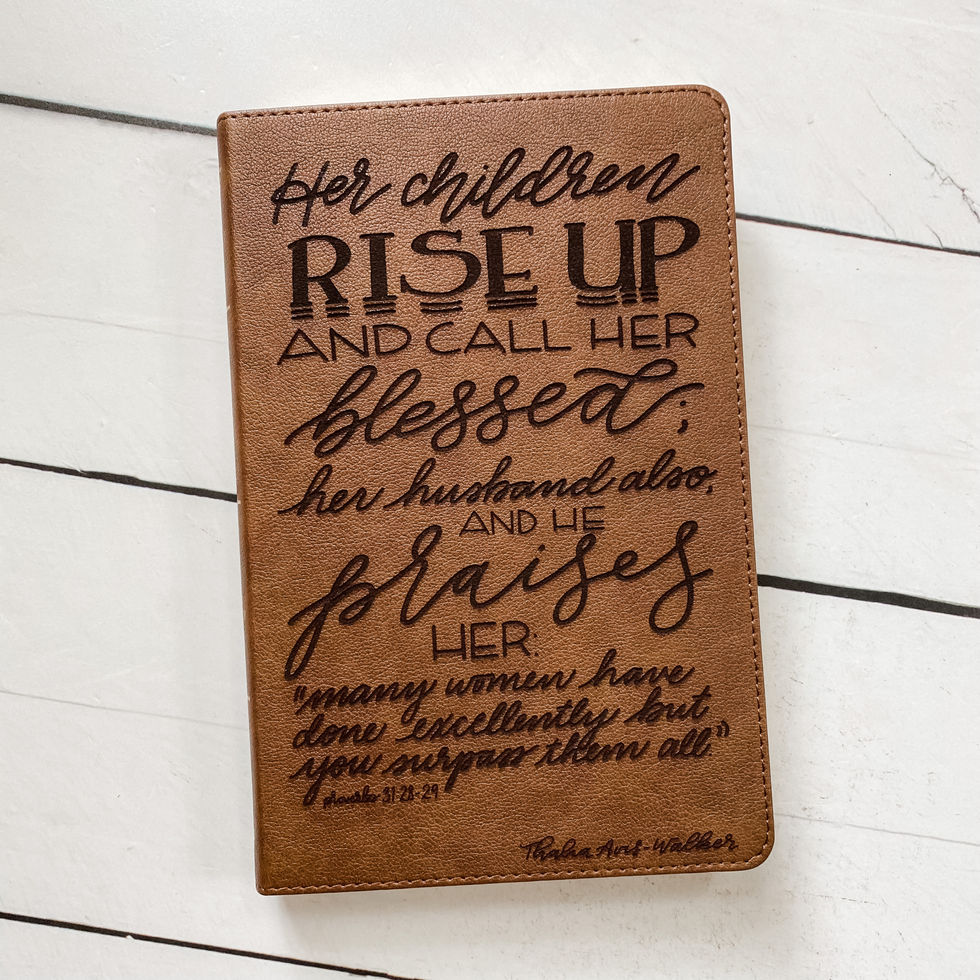 Her children
RISE UP
AND CALL HER
blessed;
her husband also,
AND HE
praises
HER:
"many women have
done excellently but
you surpass them all"
proverbs 31:28-29
Thalia Avis-Walker